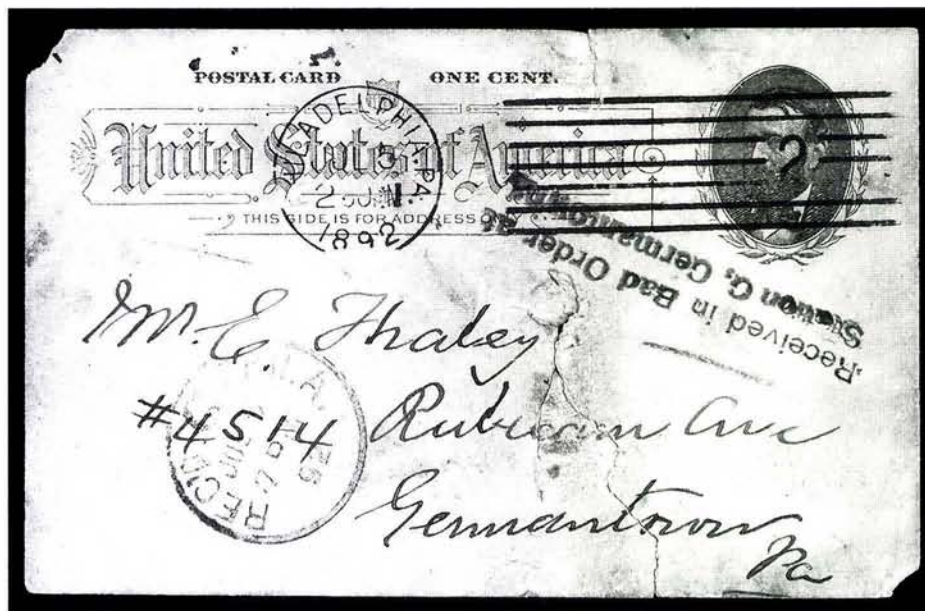 POSTAL CARD ONE CENT.
United States of America
THIS SIDE IS FOR ADDRESS
PHILADELPHIA, PA.
5
1892
2
Received in Bad Order at
Station G, Germantown
Mr. E. Thaley
#4514 Rubicam Ave
Germantown
Pa
REC'D